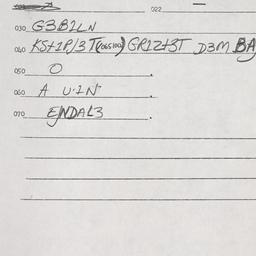 022
030 G3B2LN
040 KS+1P/3 T(065100) GR1Z+3T D3M BA
050 O
060 A U·IN
070 EJNDAL3